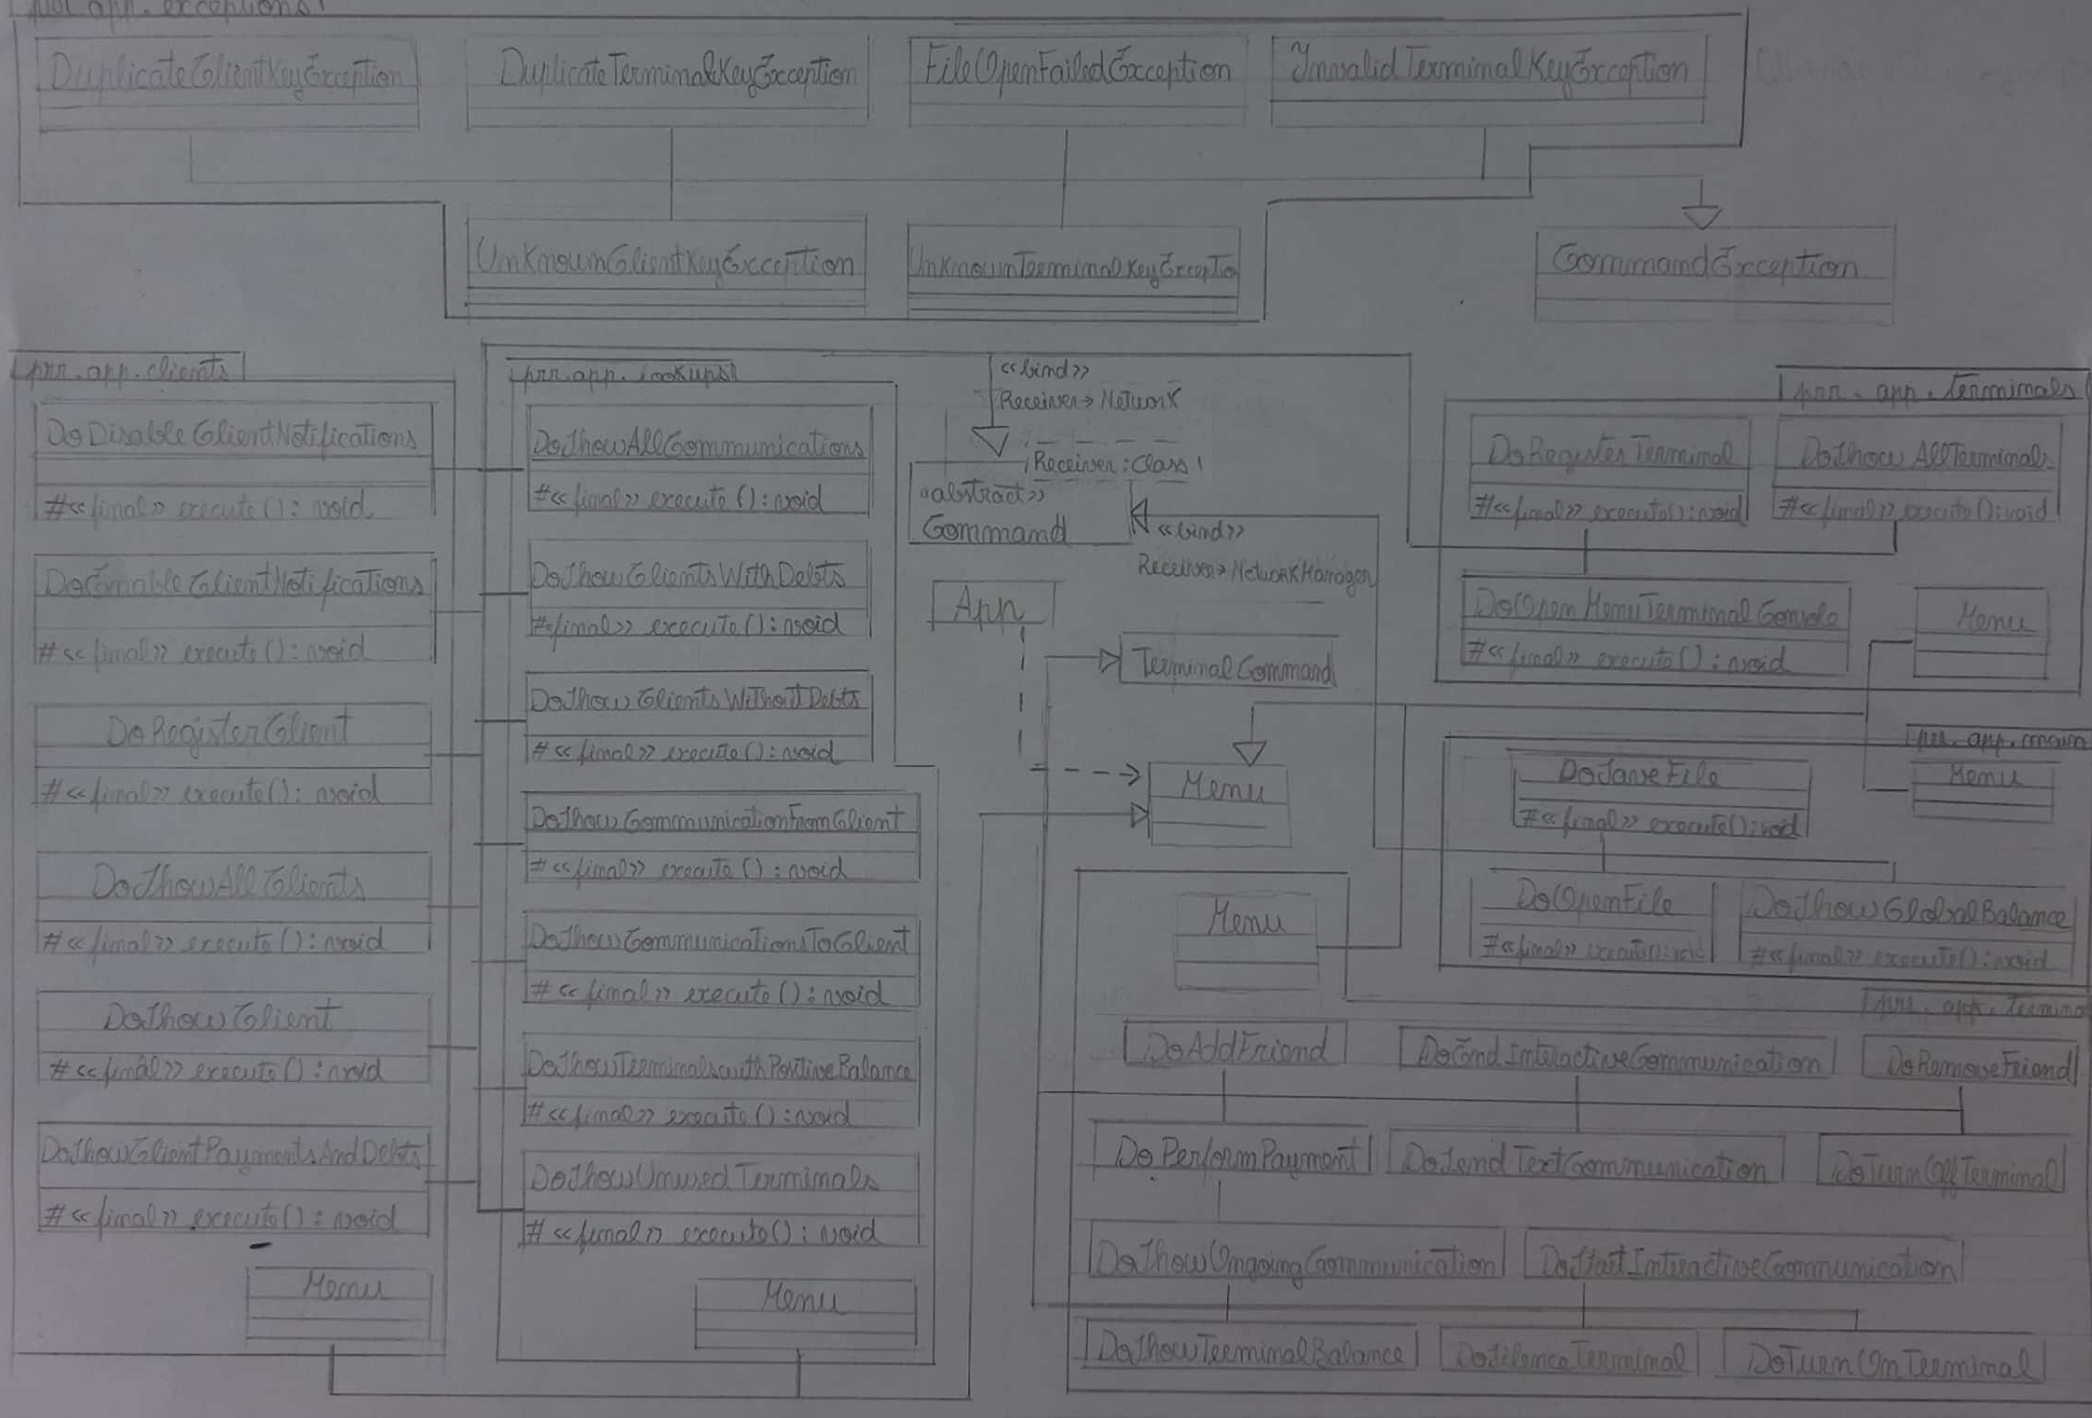 prr.app.exceptions
DuplicateClientKeyException
DuplicateTerminalKeyException
FileOpenFailedException
InvalidTerminalKeyException
UnknownClientKeyException
UnknownTerminalKeyExceptio
CommandException
prr.app.clients
DoDisableClientNotifications
#<<final>> execute(): void
DoEnableClientNotifications
#<<final>> execute(): void
DoRegisterClient
#<<final>> execute(): void
DoShowAllClients
#<<final>> execute(): void
DoShowClient
#<<final>> execute(): void
DoShowClientPaymentsAndDebts
#<<final>> execute(): void
Menu
prr.app.lookups
DoShowAllCommunications
#<<final>> execute(): void
DoShowClientsWithDebts
#<final>> execute(): void
DoShowClientsWithoutDebts
#<<final>> execute(): void
DoShowCommunicationFromClient
#<<final>> execute(): void
DoShowCommunicationsToClient
#<<final>> execute(): void
DoShowTerminalswithPositiveBalance
#<<final>> execute(): void
DoShowUnusedTerminals
#<<final>> execute(): void
Menu
<<bind>>
Receiver→Network
Receiver:Class
<<abstract>>
Command
<<bind>>
Receiver→NetworkManager
App
TerminalCommand
Menu
prr.app.terminals
DoRegisterTerminal
#<<final>> execute():void
DoShowAllTerminals
#<<final>> execute():void
DoOpenMenuTerminalConsole
#<<final>> execute(): void
Menu
prr.app.main
DoSaveFile
#<<final>> execute():void
Menu
DoOpenFile
#<<final>> execute():void
DoShowGlobalBalance
#<<final>> execute(): void
prr.app.termina
Menu
DoAddFriend
DoEndInteractiveCommunication
DoRemoveFriend
DoPerformPayment
DoSendTextCommunication
DoTurnOffTerminal
DoShowOngoingCommunication
DoStartInteractiveCommunication
DoShowTerminalBalance
DoSilenceTerminal
DoTurnOnTerminal